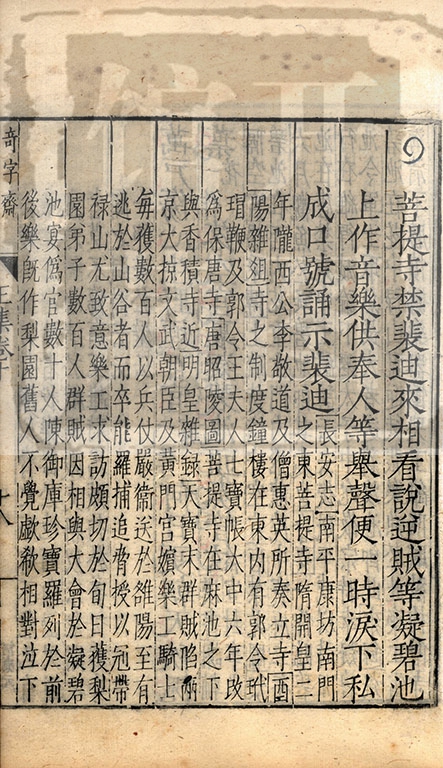 菩提寺禁裴迪來相看說逆賊等凝碧池
上作音樂供奉人等舉聲便一時淚下私
成口號誦示裴迪
長安志南平康坊南門
之東菩提寺隋開皇二
年隴西公李敬道及僧惠英所奏立寺酉
陽雜俎寺之制度鐘樓在東內有郭令玳
瑁鞭及郭令王夫人七寶帳大中六年改
為保唐寺唐昭陵圖菩提寺在麻池之下
與香積寺近明皇雜録天寶末群賊陷兩
京大掠文武朝臣及黃門宮嬪樂工騎士
每獲數百人以兵仗嚴衞送於雒陽至有
逃於山谷者而卒能羅捕追脅授以冠帶
禄山尤致意樂工求訪頗切於旬日獲梨
園弟子數百人群賊因相與大會於凝碧
池宴僞官數十人陳御庫珍寶羅列於前
後樂旣作梨園舊人不覺歔欷相對泣下
奇字齋